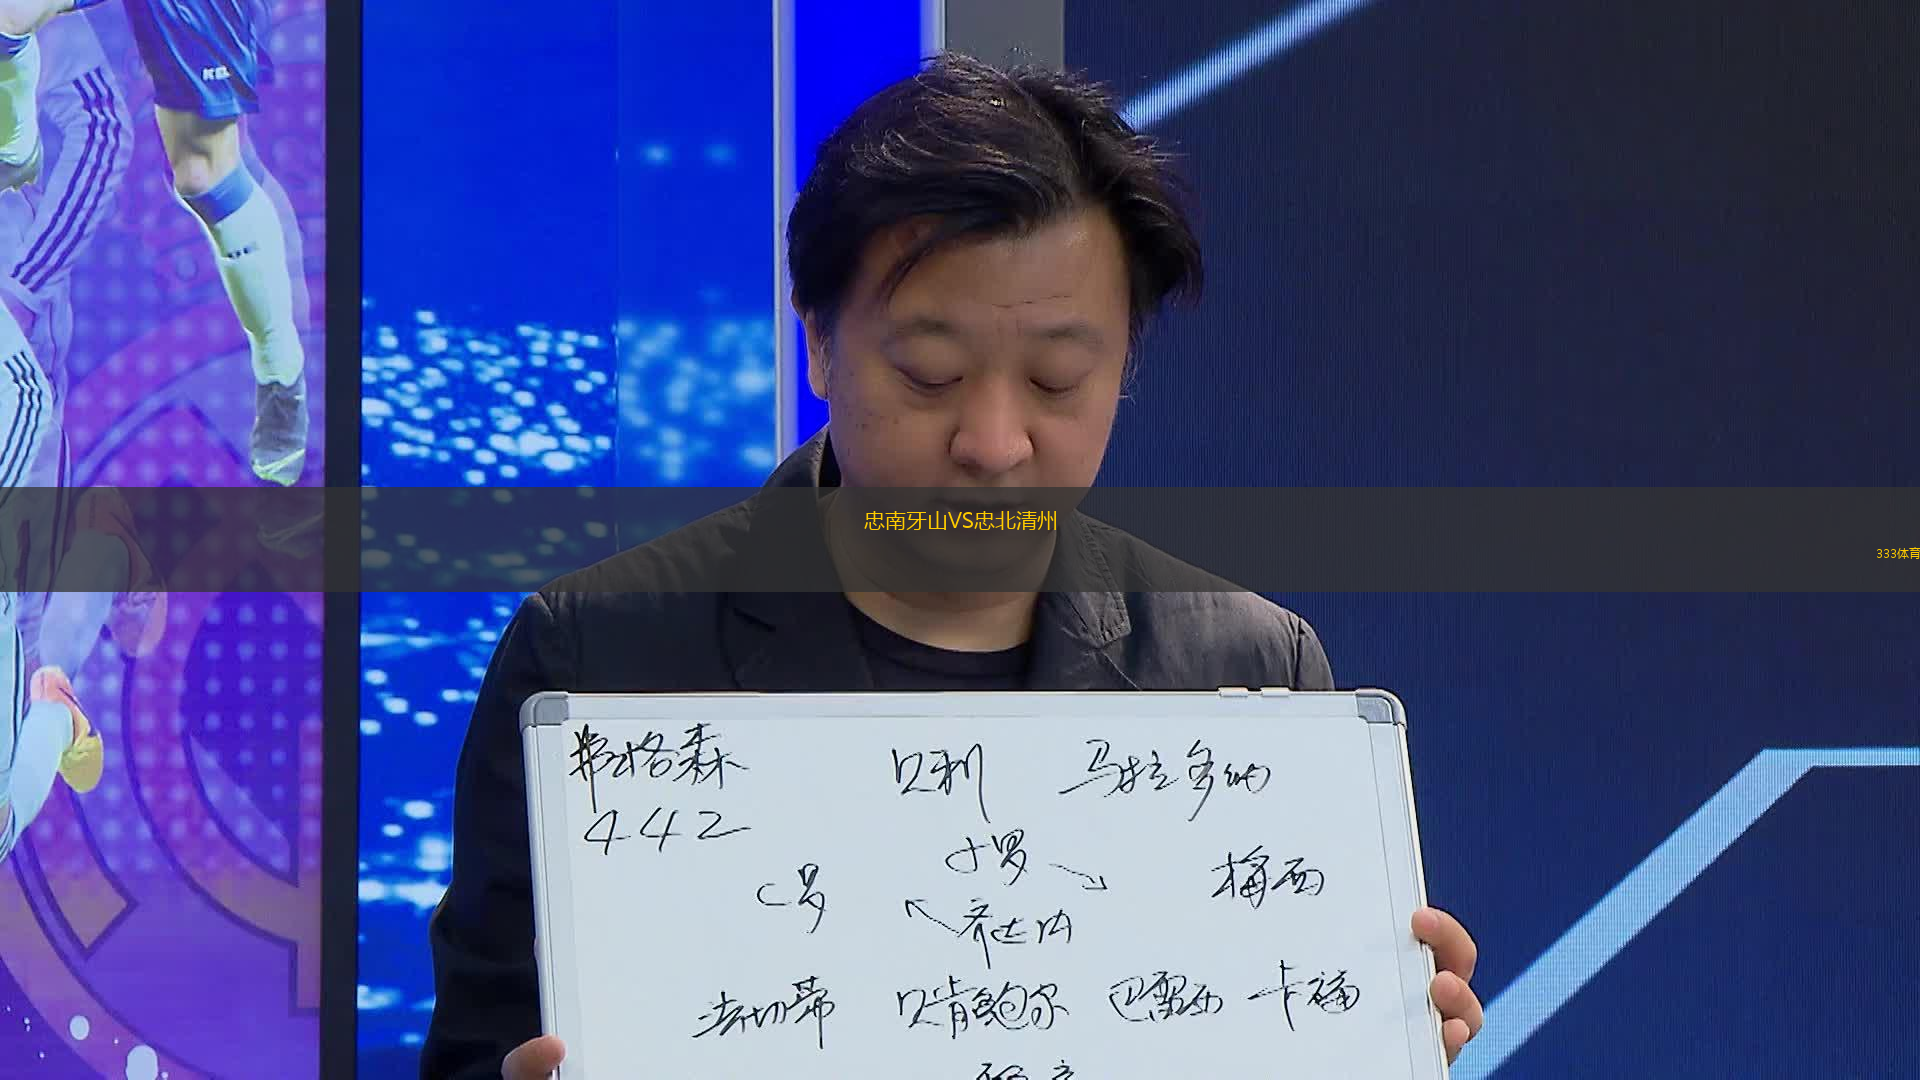 忠南牙山VS忠北清州
333体育
弗格森
442
贝利 马拉多纳
小罗
C罗 梅西
齐达内
法切蒂 贝肯鲍尔 巴雷西 卡福